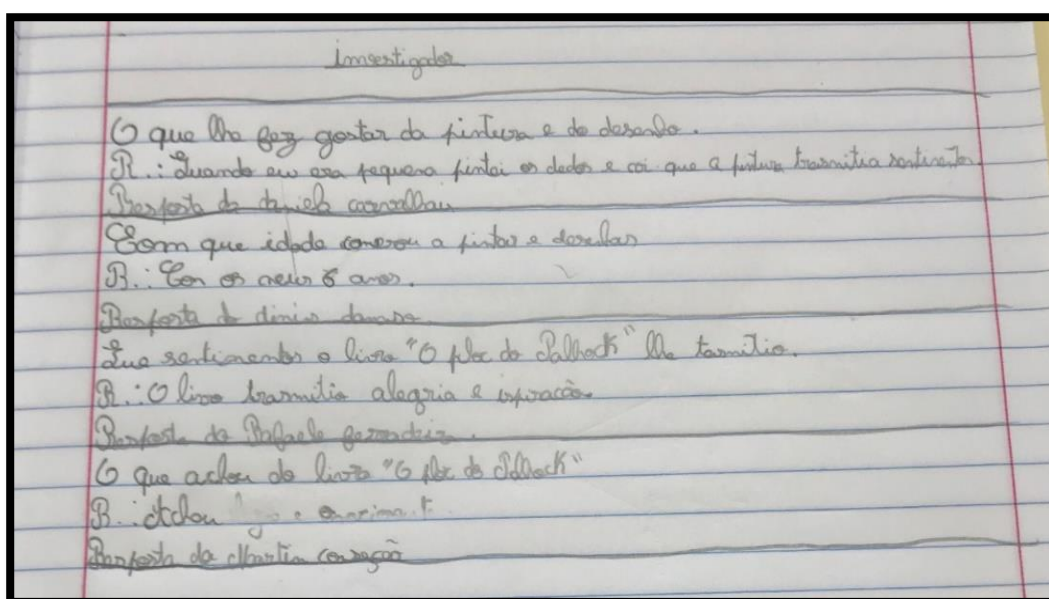 Investigador
O que lhe fez gostar da pintura e do desenho.
R.: Quando eu era pequena pintei os dedos e vi que a pintura trasmitia sentimentos
Resposta da daniela carvalhau
Com que idade começou a pintar e desenhar
R.: Com os meus 6 anos.
Resposta do dinis damaso
Que sentimentos o livro "O ploc do Pollock" lhe tasmitio.
R.: O livro trasmitiu alegria e inspiração
Resposta da Rafaela
O que achou do livro "O ploc do Pollock"
R.: Achou
Resposta da Martim conceção